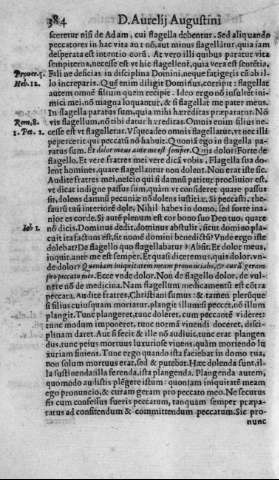 384 D. Aurelij Augustini
sceretur nisi de Adam, cui flagella debentur. Sed aliquando
peccatores in hac vita aut non, aut minus flagellātur, quia iam
desperata est intentio cordis. At vero illi quibus paratur vita
sempiterna, necesse est vt hic flagellent, quia vera est sententia,
Prover. 3. Fili ne deficias in disciplina Domini, neque fatigeris cū ab il-
Heb. 12. lo increparis. Quē enim diligit Dominus, corripit: flagellat
autem omnē filium quem recipit. Ideo ergo nō insultēt ini-
mici mei, nō magna loquantur, & si flagellat me pater meus.
In flagella paratus sum, quia mihi hæreditas præparatur. Nō
Rom. 8. vis flagellum, nō tibi datur hæreditas. Omnis enim filius ne-
1. Pet. 2. cesse est vt flagelletur. Vsque adeo omnis flagellatur, vt nec illi
pepercerit qui peccatū nō habuit. Quoniā ego in flagella pa-
ratus sum. Et dolor meus ante me est semper. Quis dolor? Forte de
flagello. Et vere fratres mei vere dicā vobis. Flagella sua do-
lent homines, quare flagellantur non dolent. Non erat iste sic.
Audite fratres mei,
ve sit dicat indigne passus sum, quàm vt consideret quare passus
sit, dolens damnū pecuniæ nō dolens iustitiæ. Si peccasti, the-
saurū tuū interiorē dole. Nihil habes in domo, sed forte ina-
nior es corde. Si autē plenum est cor bono suo Deo tuo, quare
Iob 1. nō dicis. Dominus dedit, dominus abstulit, sicut domino pla-
cuit ita factum est, sit nomē domini benedictū? Vnde ergo iste
dolebat? De flagello quo flagellabatur? Absit. Et dolor meus,
inquit, ante me est semper. Et quasi diceremus, quis dolor, vn-
de dolor? Quoniam iniquitatem meam pronunciabo, & curā geram
pro peccato meo. Ecce vnde dolor. Non de flagello dolor, de vul-
nere nō de medicina. Nam flagellum medicamentū est cōtra
peccata. Audite fratres, Christiani sumus: & tamen plerūque
si filius cuiusquam moriatur, plangit illum: si peccet, nō illum
plangit. Tunc plangeret, tunc doleret, cum peccantē videret:
tunc modum imponeret, tunc normā viuendi doceret, disci-
plinam daret. Aut si fecit & ille nō audiuit, tunc erat plangen-
dus, tunc peius mortuus luxuriose viuens, quàm moriendo lu
xuriam finiens. Tunc ergo quando ista faciebat in domo tua,
non solum mortuus erat, sed & putebat. Hæc dolenda sunt, il-
la sustinenda: illa ferenda, ista plangenda. Plangenda autem,
quomodo audistis plāgere istum: quoniam iniquitatē meam
ego pronuncio, & curam geram pro peccato meo. Ne securus
sis cum confessus fueris peccatum, tanquam semper præpa-
ratus ad confitendum & committendum peccatum. Sic pro
nunc